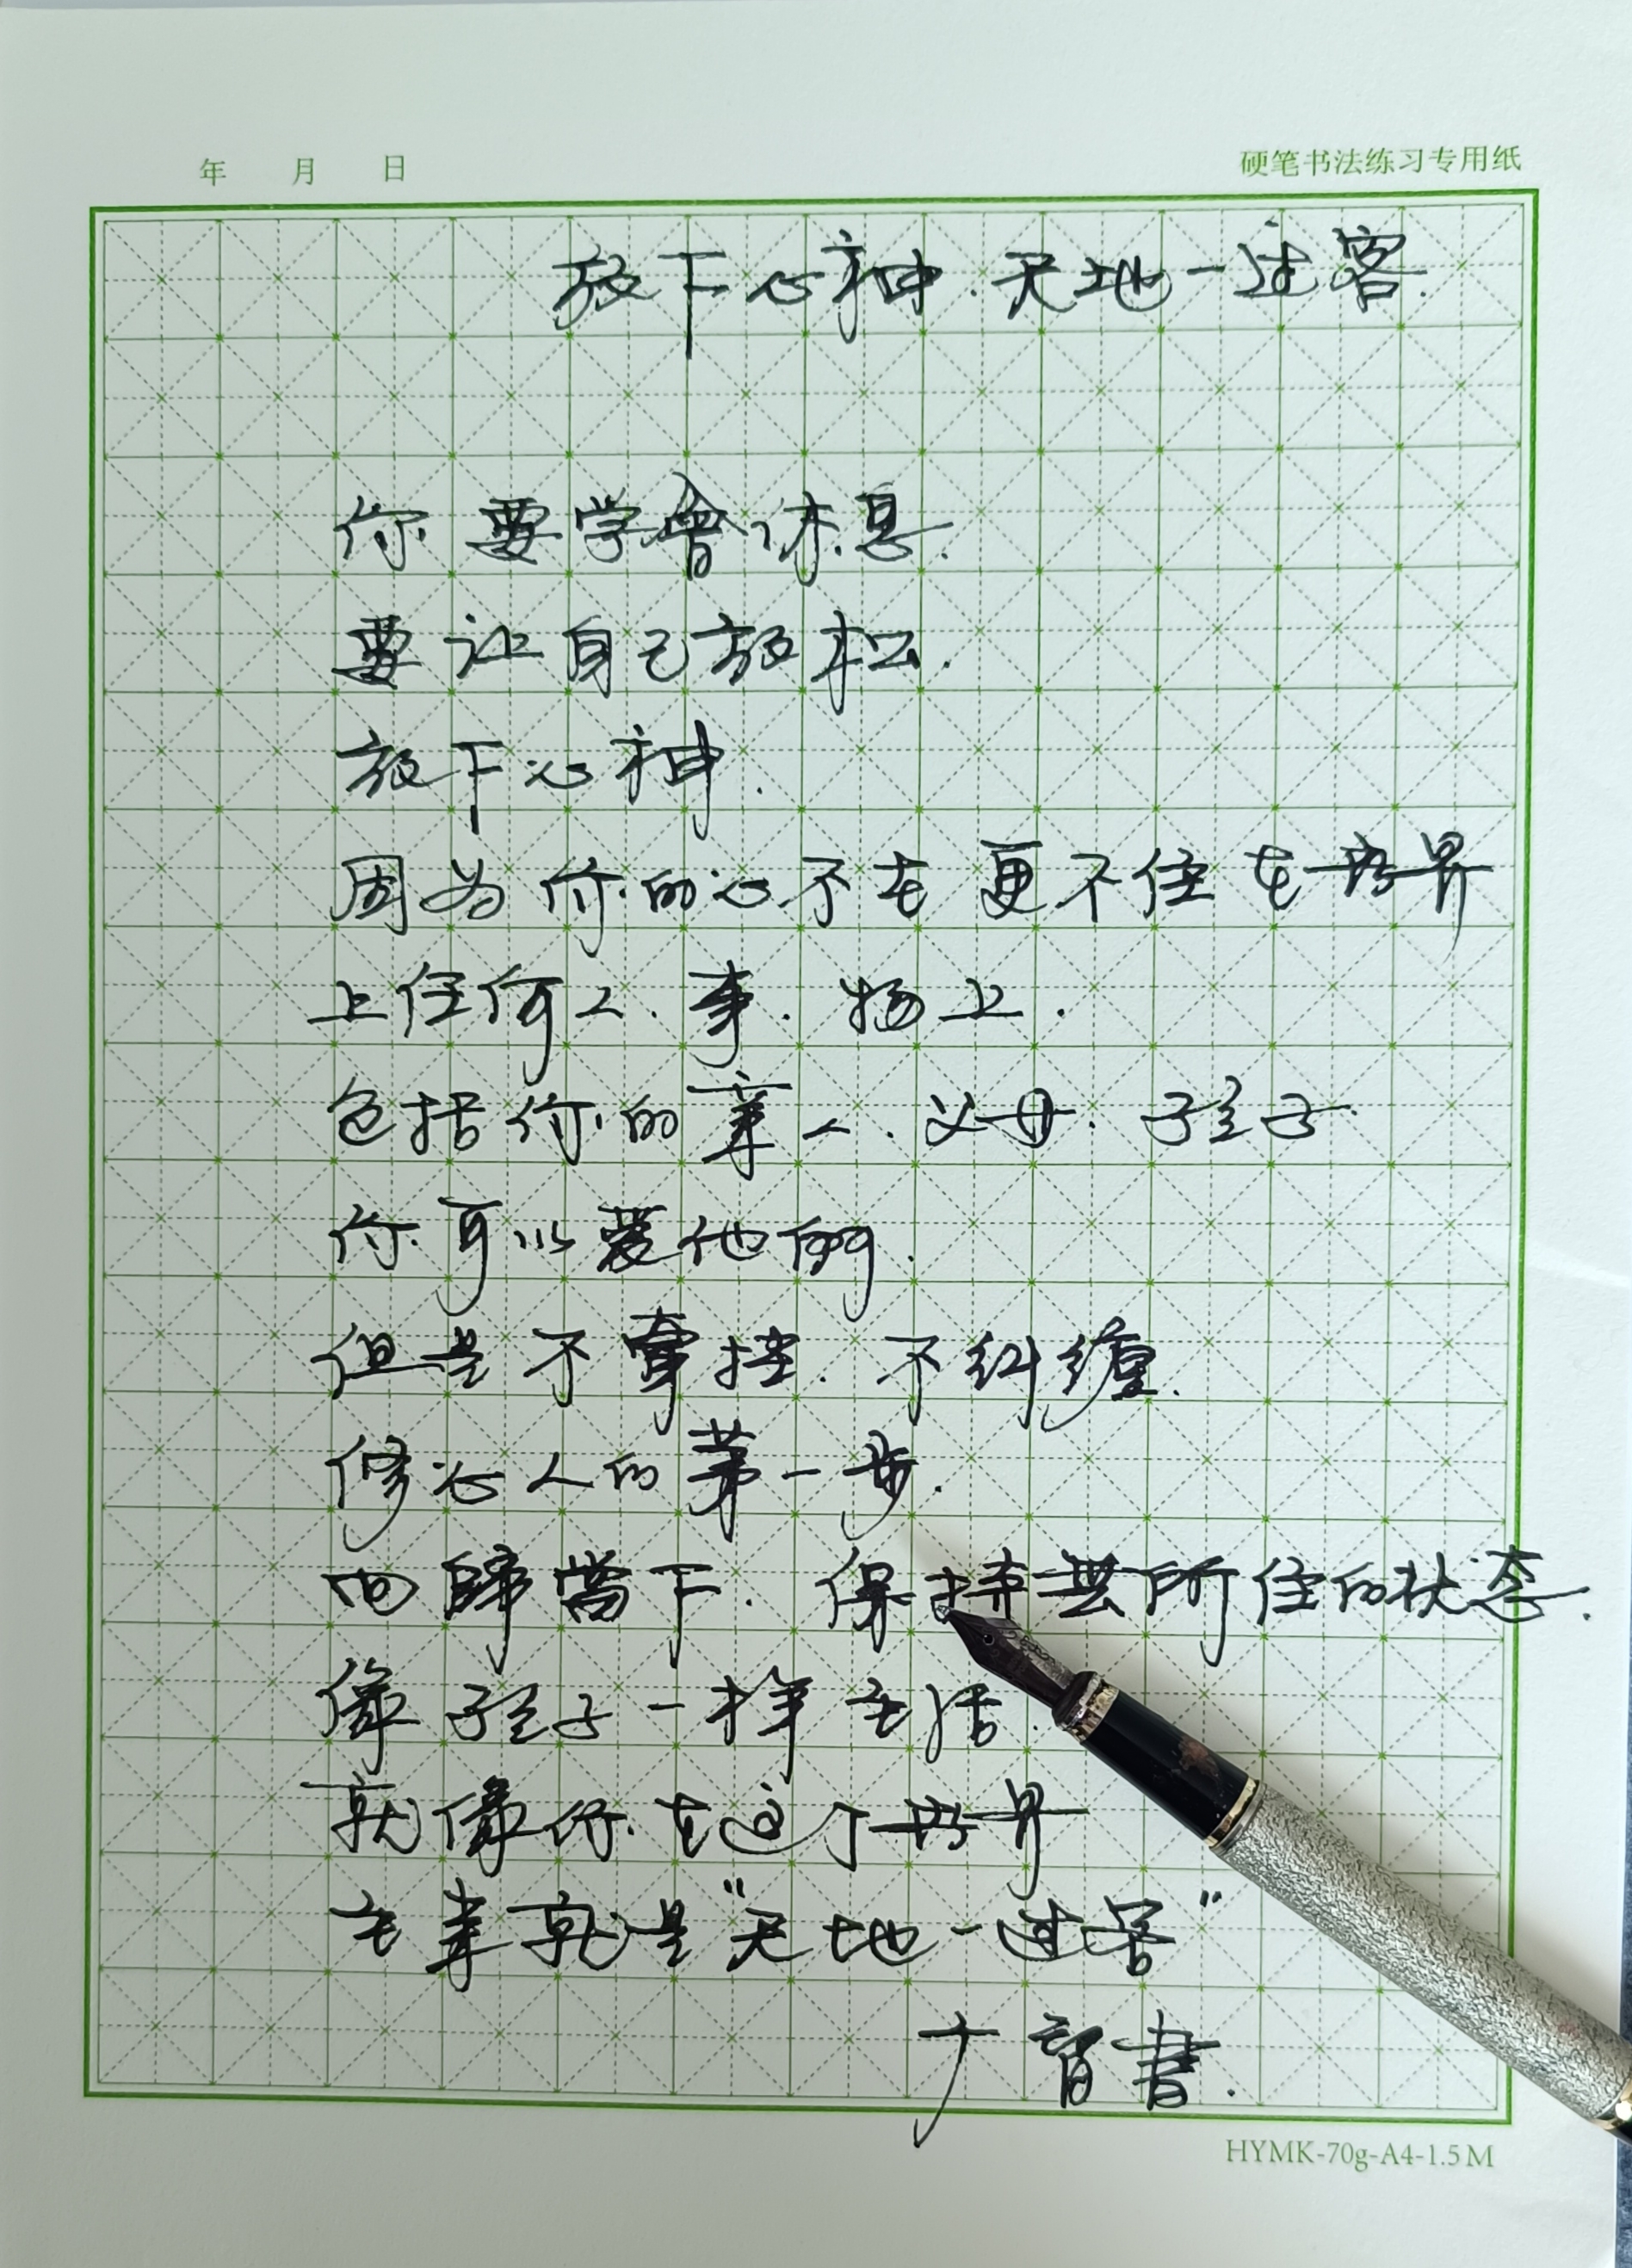 年 月 日
硬笔书法练习专用纸
放下心神.天地一过客.
你要学會休息.
要让自己放松.
放下心神.
因为你的心不在更不住在世界
上任何人.事.物上.
包括你的亲人.父母.孩子
你可以爱他们.
但是不牵挂.不纠缠.
修心人的第一步.
回歸當下.保持無所住的状态.
像孩子一样生活.
就像你在这个世界
生来就是“天地一过客”
書.
HYMK-70g-A4-1.5M